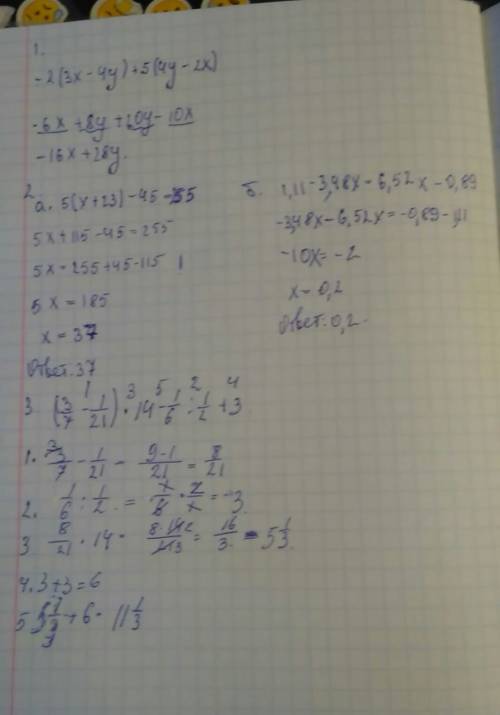 1.
-2(3x-4y)+5(4y-2x)
-6x+8y+20y-10x
-16x+28y.
2
а. 5(x+23)-45=255
5x+115-45=255
5x=255+45-115
5x=185
x=37
Ответ:37
б. 1,11-3,48x=6,52x-0,89
-3,48x-6,52x=-0,89-1,11
-10x=-2
x=0,2
Ответ:0,2.
1 3 5 2 4
3. (3/7-1/21)·14-1/6:1/2+3
1. 3/7-1/21=9-1/21=8/21
2. 1/6:1/2=1/6·2/1=3
3 8/21·14=8·14 2/21 3=16/3=5 1/3
4. 3+3=6
5 5 1/3+6=11 1/3